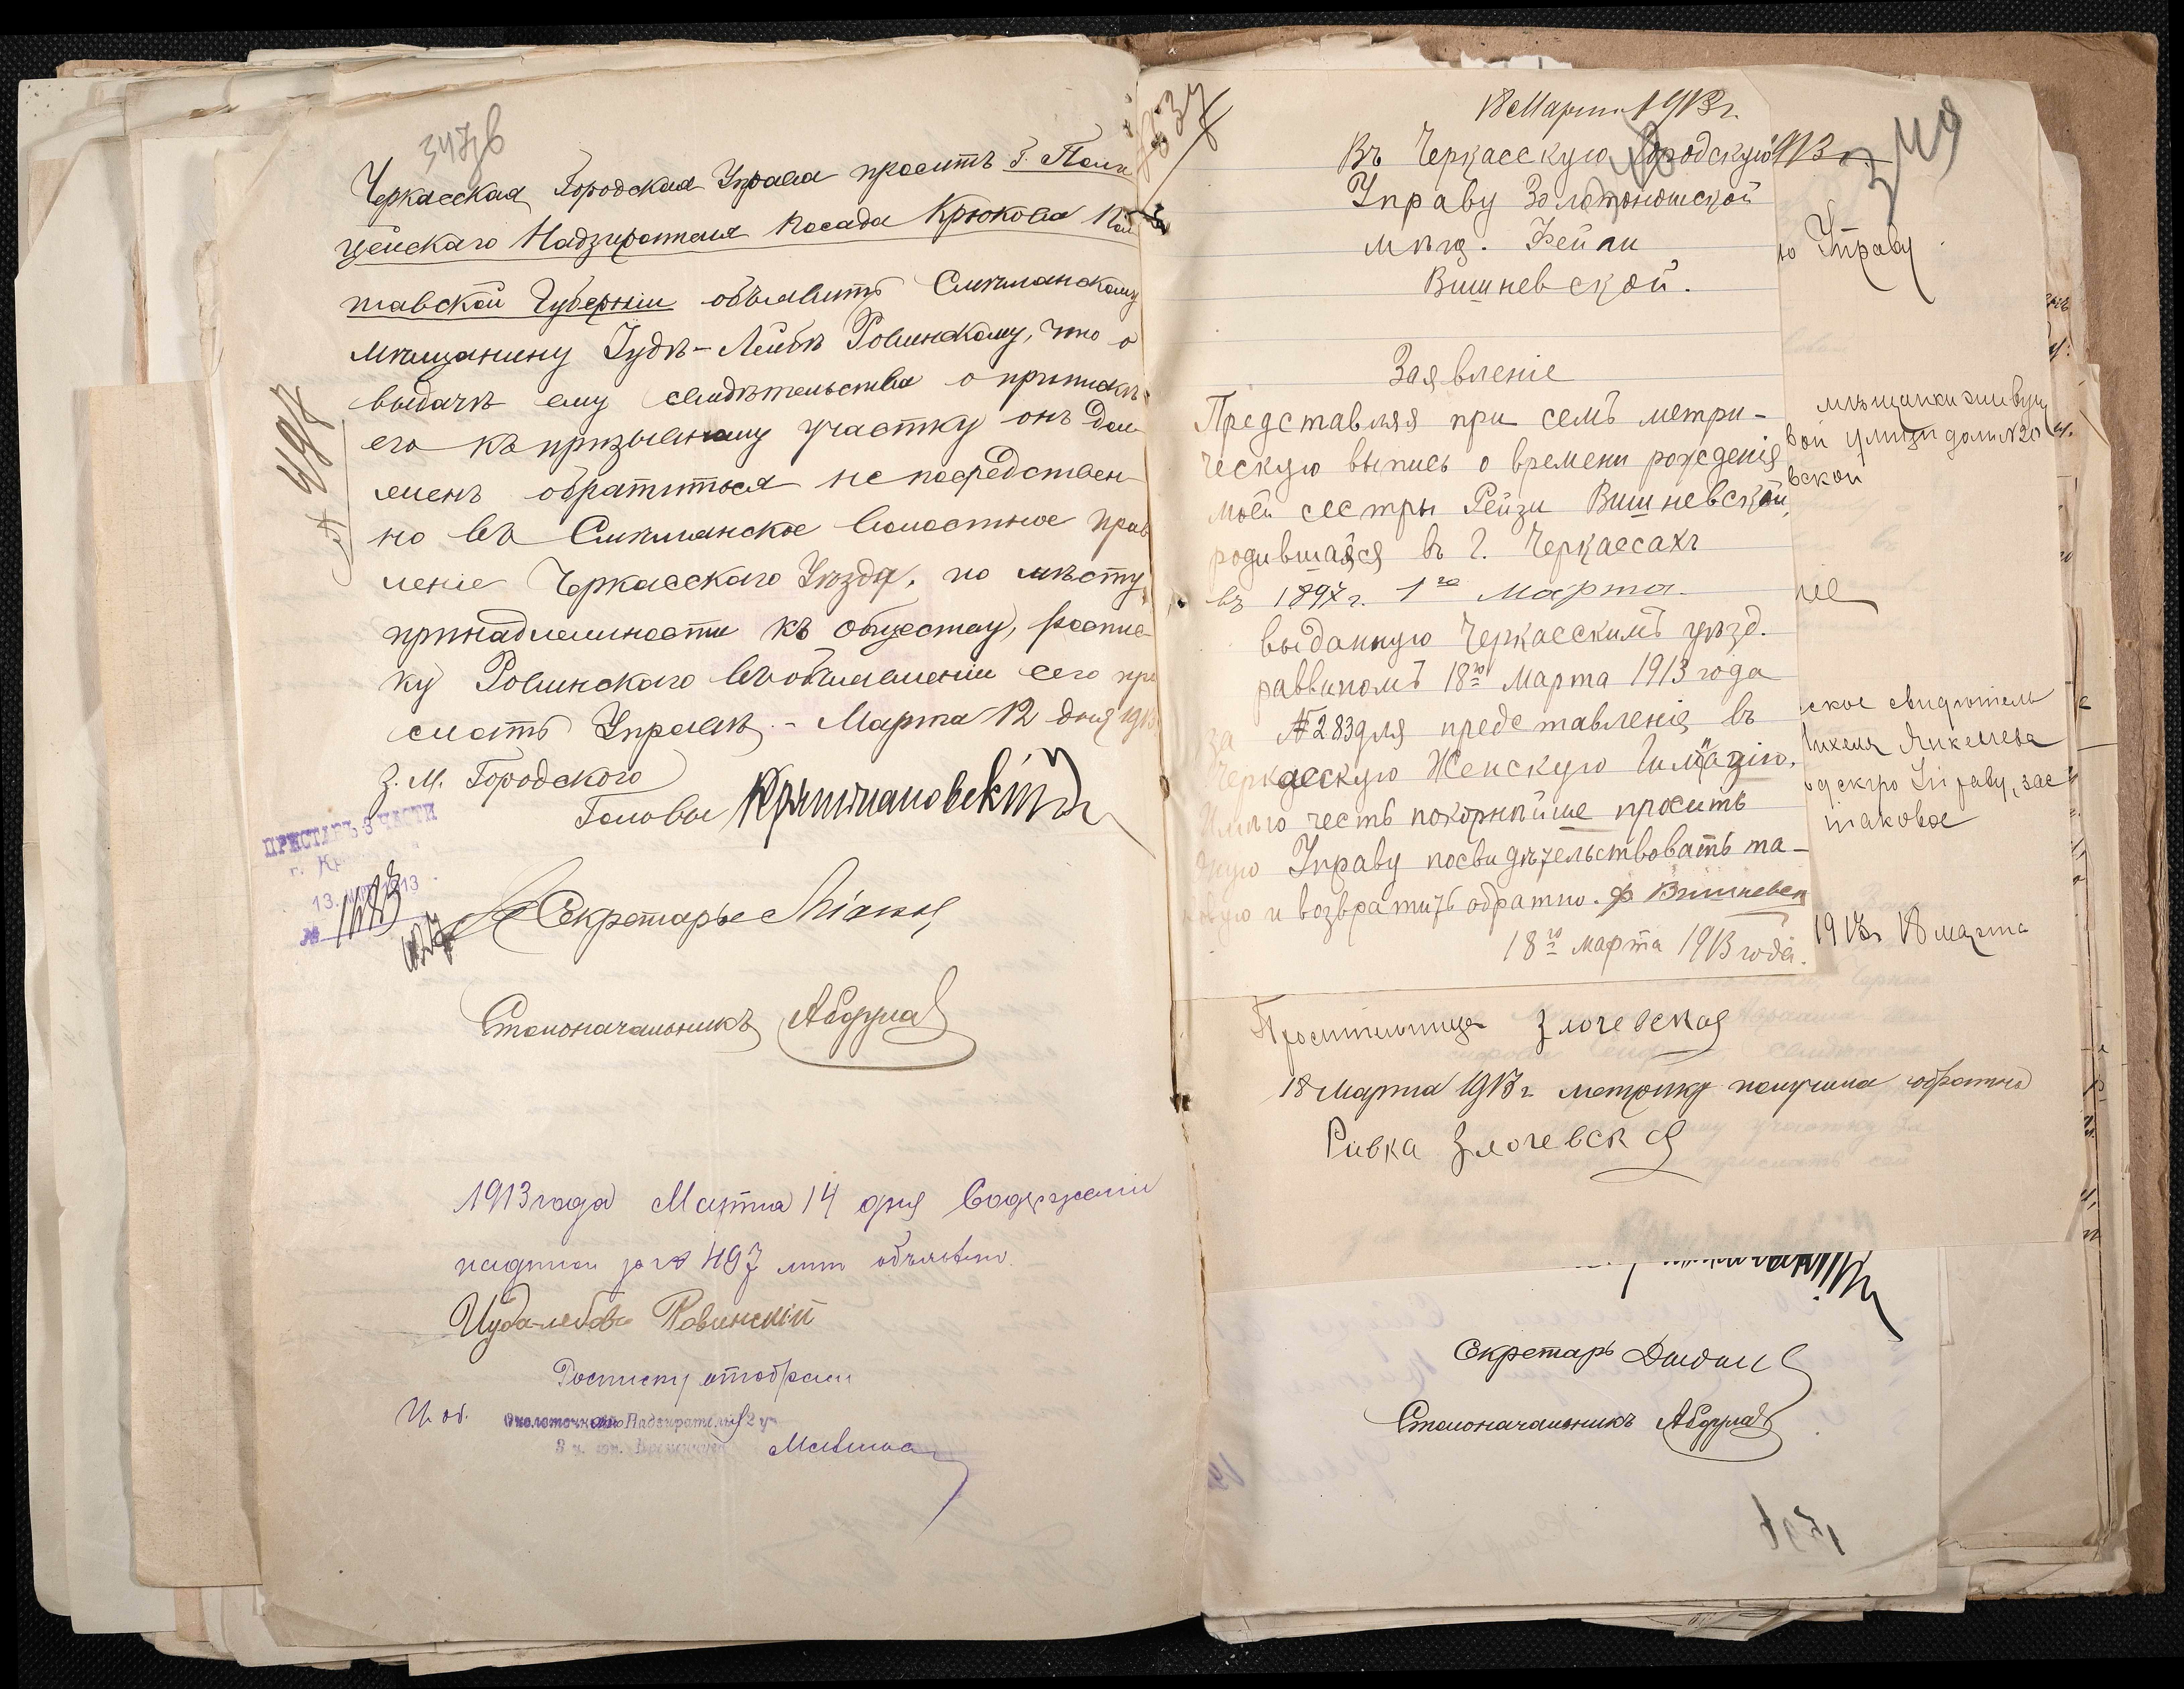 347 об
Черкасская Городская Управа просить Г. Поли
цейскаго Надзирателя посада Крюкова Пол
тавской Губерніи объявить Смѣлянскому
мѣщанину Іудѣ-Лейбѣ Ровинскому, что о
выдачѣ ему свидѣтельства о припискѣ
его къ призывному участку онъ дол
женъ обратиться непосредствен
но въ Смѣлянское Волостное Прав
леніе Черкасскаго Уѣзда, по мѣсту
принадлежности къ обществу, росписс
ку Ровинскаго въ объявленіи сего при
слать Управѣ. - Марта 12 дня 1913
З. М. Городского
Головы
Секретарь
Столоначальникъ
№ 497
ПРИСТАВЪ 3 ЧАСТИ
13. 1913
№
1913 года Марта 14 дня Содержаніе
надписи за № 497 мнѣ объявлено.
Іуда-Лейба Ровинскій
Росписку отобралъ
И. об. Околоточнаго Надзирателя 2 уч.
18 Марта 1913 г.
Въ Черкасскую Городскую
Управу Золотоношской
мѣщ. Фейги
Вишневской.
Заявленіе
Представляя при семъ метри-
ческую выпись о времени рожденія
моей сестры Рейзи Вишневской,
родившайся въ г. Черкассахъ
въ 1897 г. 1го Марта.
выданную Черкасскимъ уѣзд.
раввиномъ 18го Марта 1913 года
За № 283 для представленія въ
Черкасскую Женскую Гимназію,
Имѣю честь покорнѣйше просить
Управу посвидѣтельствовать та-
ковую и возвратить обратно. Ф Вишневск
18го марта 1913 года.
349
1913
ю Управу
мѣщанки живущ
вой улици домъ №20
вской
ніе
ское свидѣтель
одскую Управу, зас
таковое
1913 г 18 марта
Просительница Злочевская
18 Марта 1913 г. метрику получила обратно
Ривка Злочевская
Секретарь
Столоначальникъ